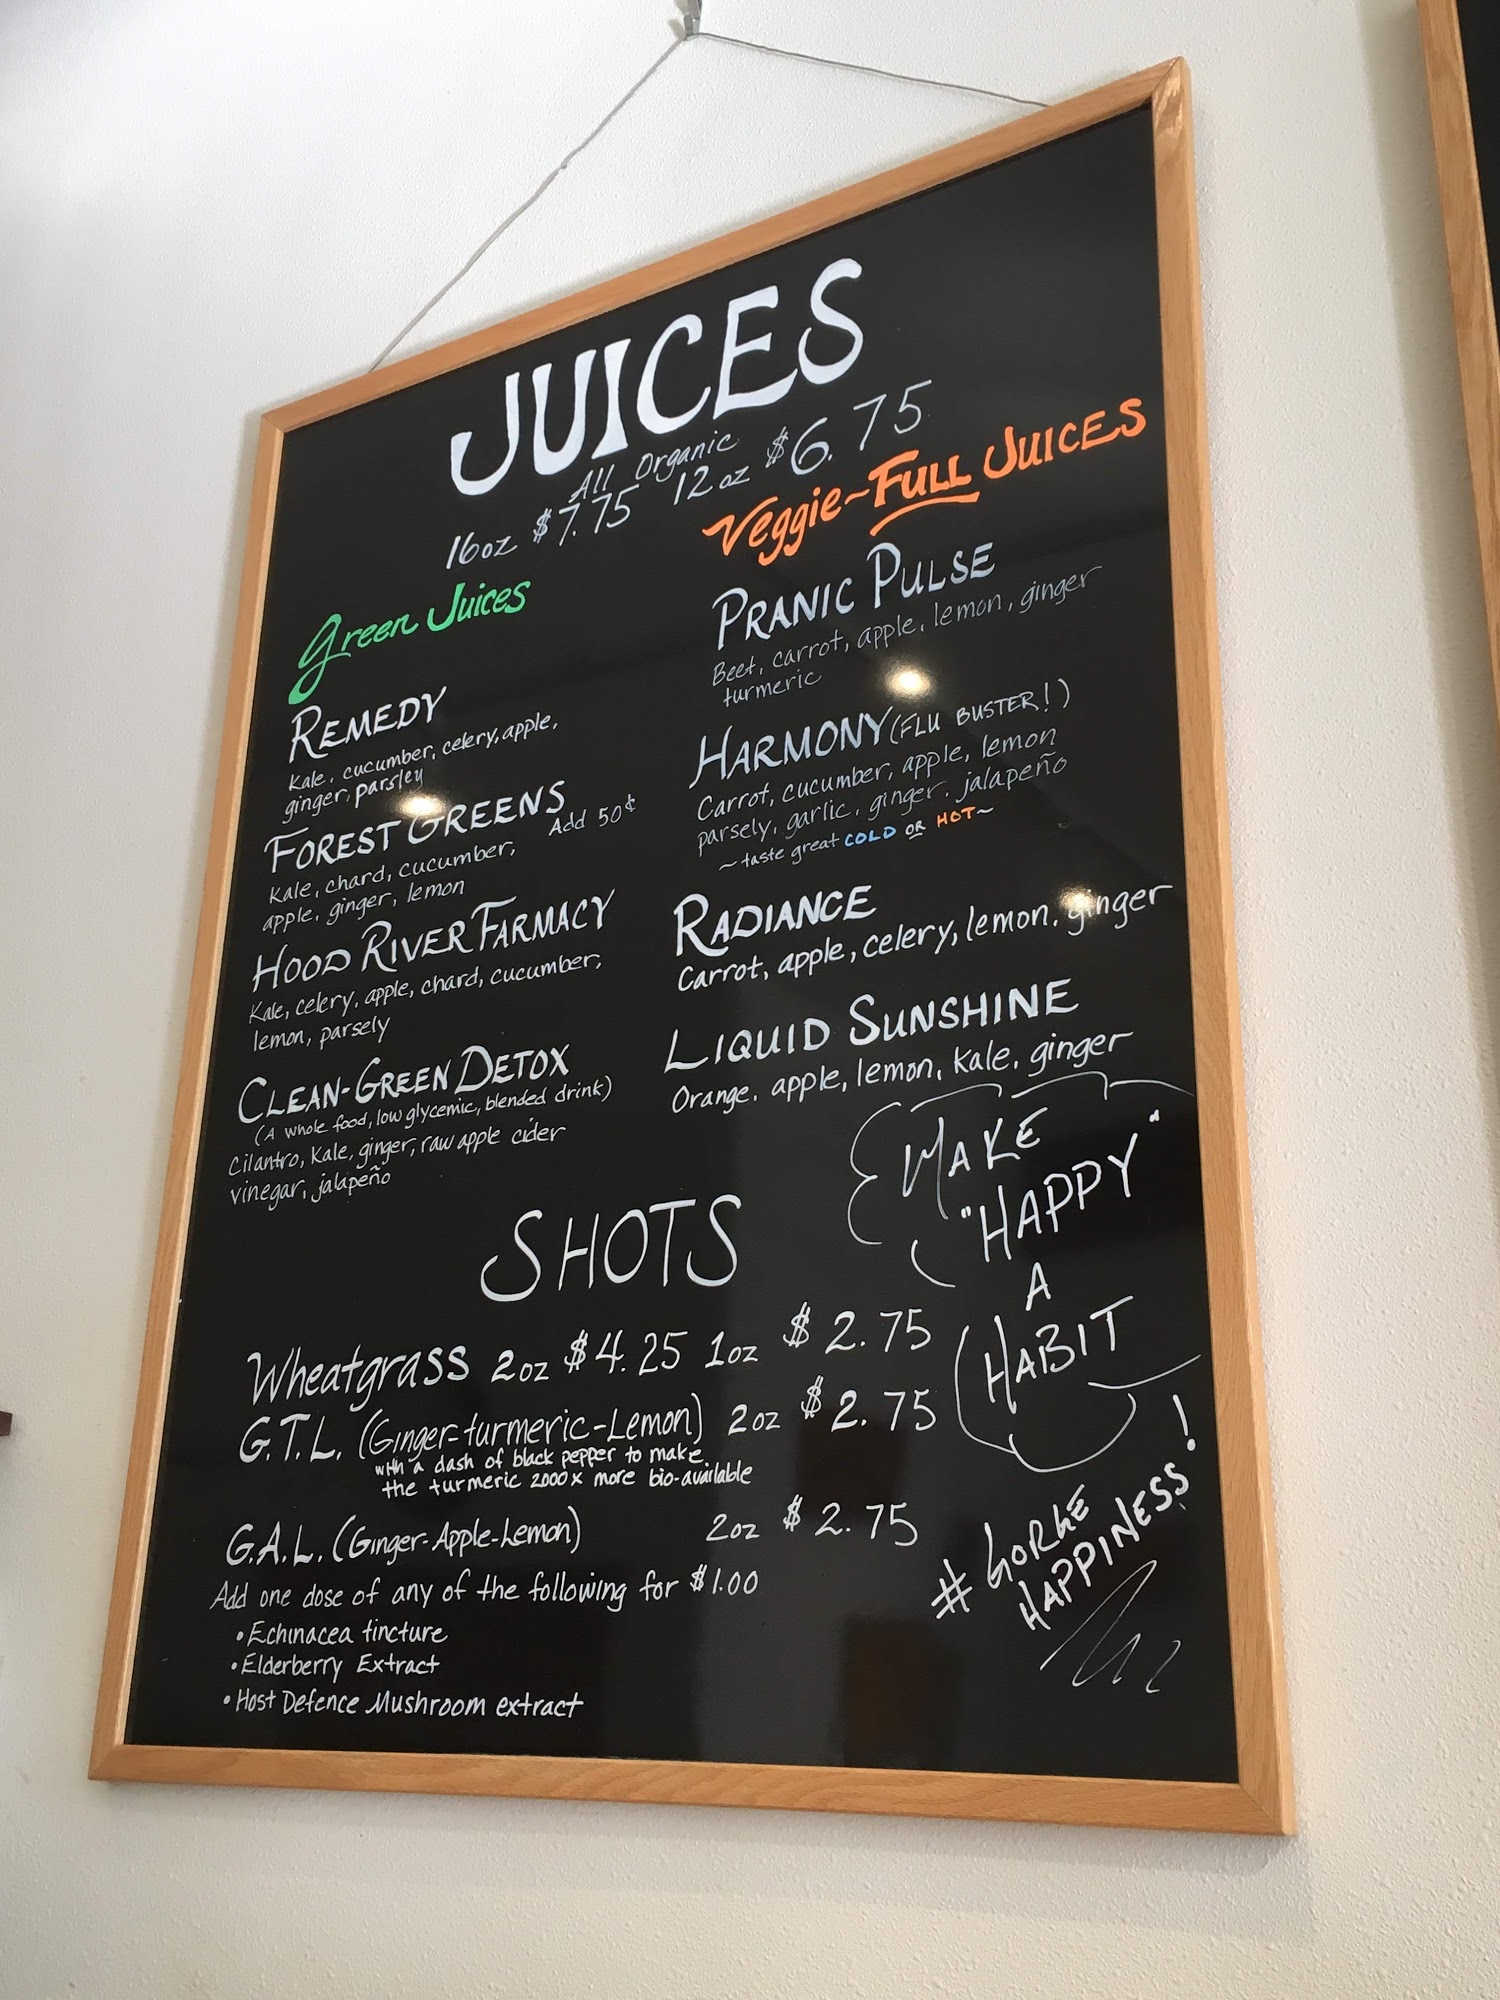 JUICES
All Organic
16oz $7.75 12oz $6.75
Green Juices
REMEDY
Kale, cucumber, celery, apple,
ginger, parsley
FOREST GREENS
Add 50¢
Kale, chard, cucumber,
apple, ginger, lemon
HOOD RIVER FARMACY
Kale, celery, apple, chard, cucumber,
lemon, parsely
CLEAN-GREEN DETOX
(A whole food, low glycemic, blended drink)
Cilantro, Kale, ginger, raw apple cider
vinegar, jalapeño
Veggie~FULL JUICES
PRANIC PULSE
Beet, carrot, apple, lemon, ginger
turmeric
HARMONY (FLU BUSTER!)
Carrot, cucumber, apple, lemon
parsely, garlic, ginger, jalapeño
~ taste great COLD OR HOT ~
RADIANCE
Carrot, apple, celery, lemon, ginger
LIQUID SUNSHINE
Orange, apple, lemon, Kale, ginger
MAKE
"HAPPY"
A
HABIT
SHOTS
Wheatgrass 2oz $4.25 1oz $2.75
G.T.L. (Ginger-turmeric-Lemon) 2oz $2.75
with a dash of black pepper to make
the turmeric 2000x more bio-available
G.A.L. (Ginger-Apple-Lemon) 2oz $2.75
Add one dose of any of the following for $1.00
• Echinacea tincture
• Elderberry Extract
• Host Defence Mushroom extract
# GORGE
HAPPINESS!